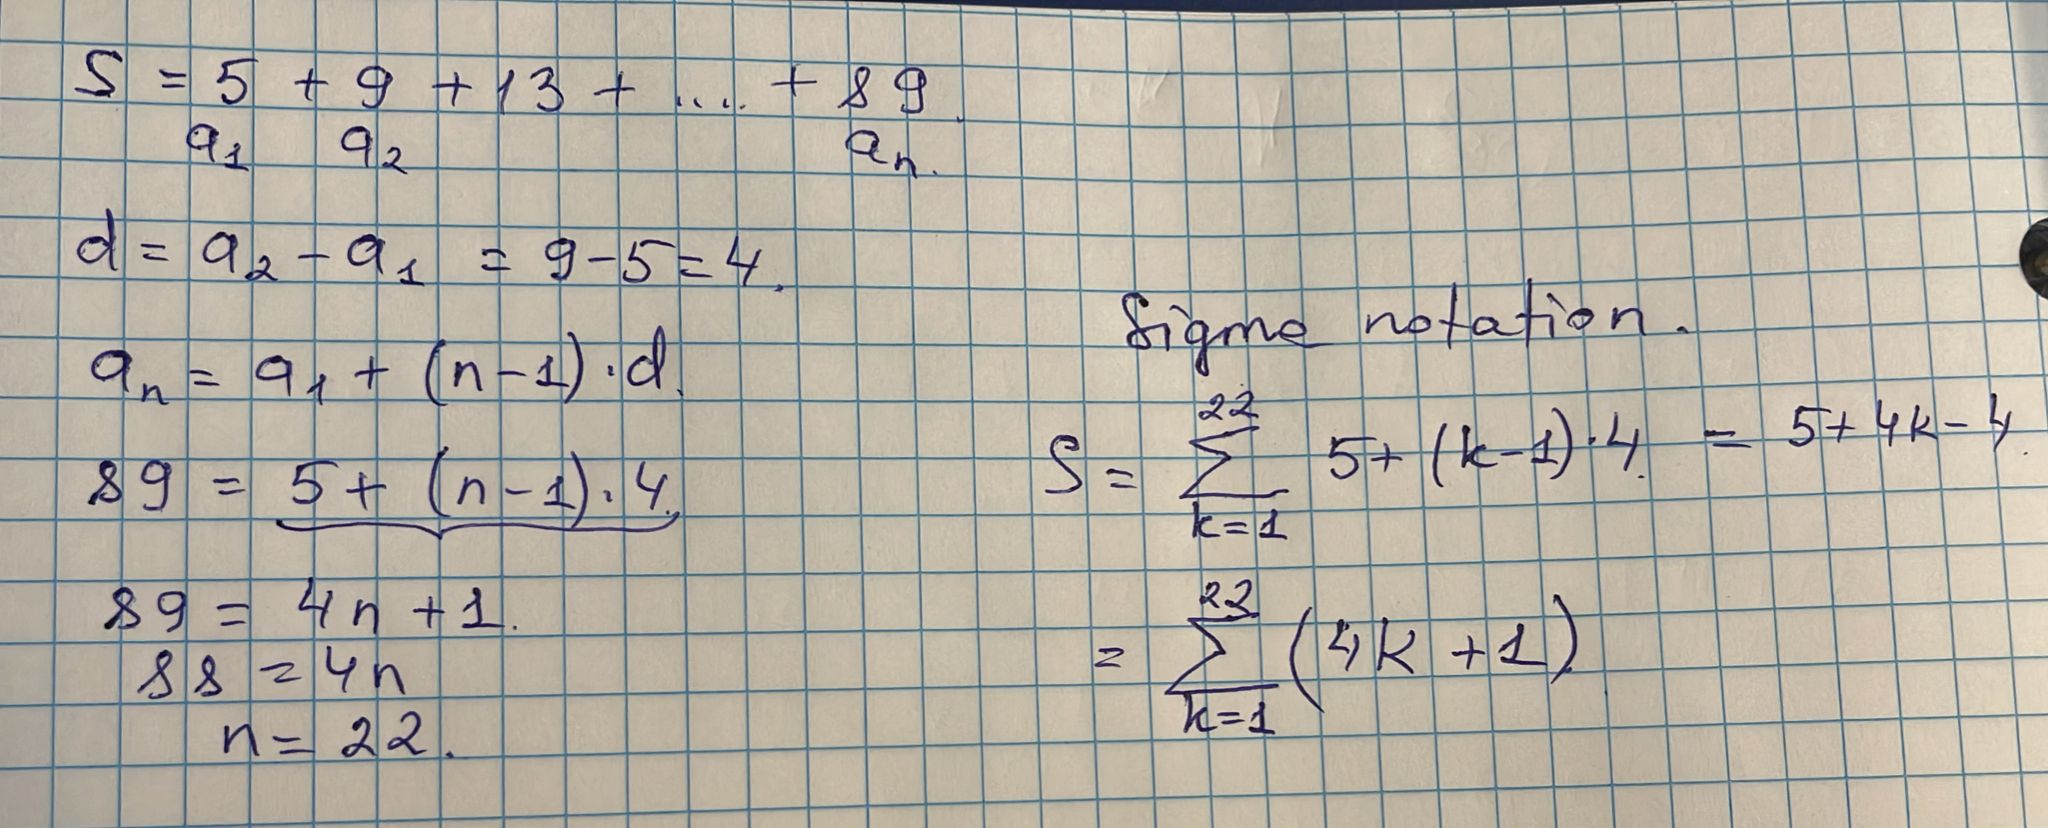 S = 5 + 9 + 13 + .... + 89.
a₁ a₂ aₙ.
d = a₂ - a₁ = 9 - 5 = 4.
aₙ = a₁ + (n-1)·d.
89 = 5 + (n-1)·4.
89 = 4n + 1.
88 = 4n
n = 22.
Sigma notation.
22
S = ∑ 5 + (k-1)·4. = 5 + 4k - 4.
k=1
22
= ∑ (4k + 1)
k=1